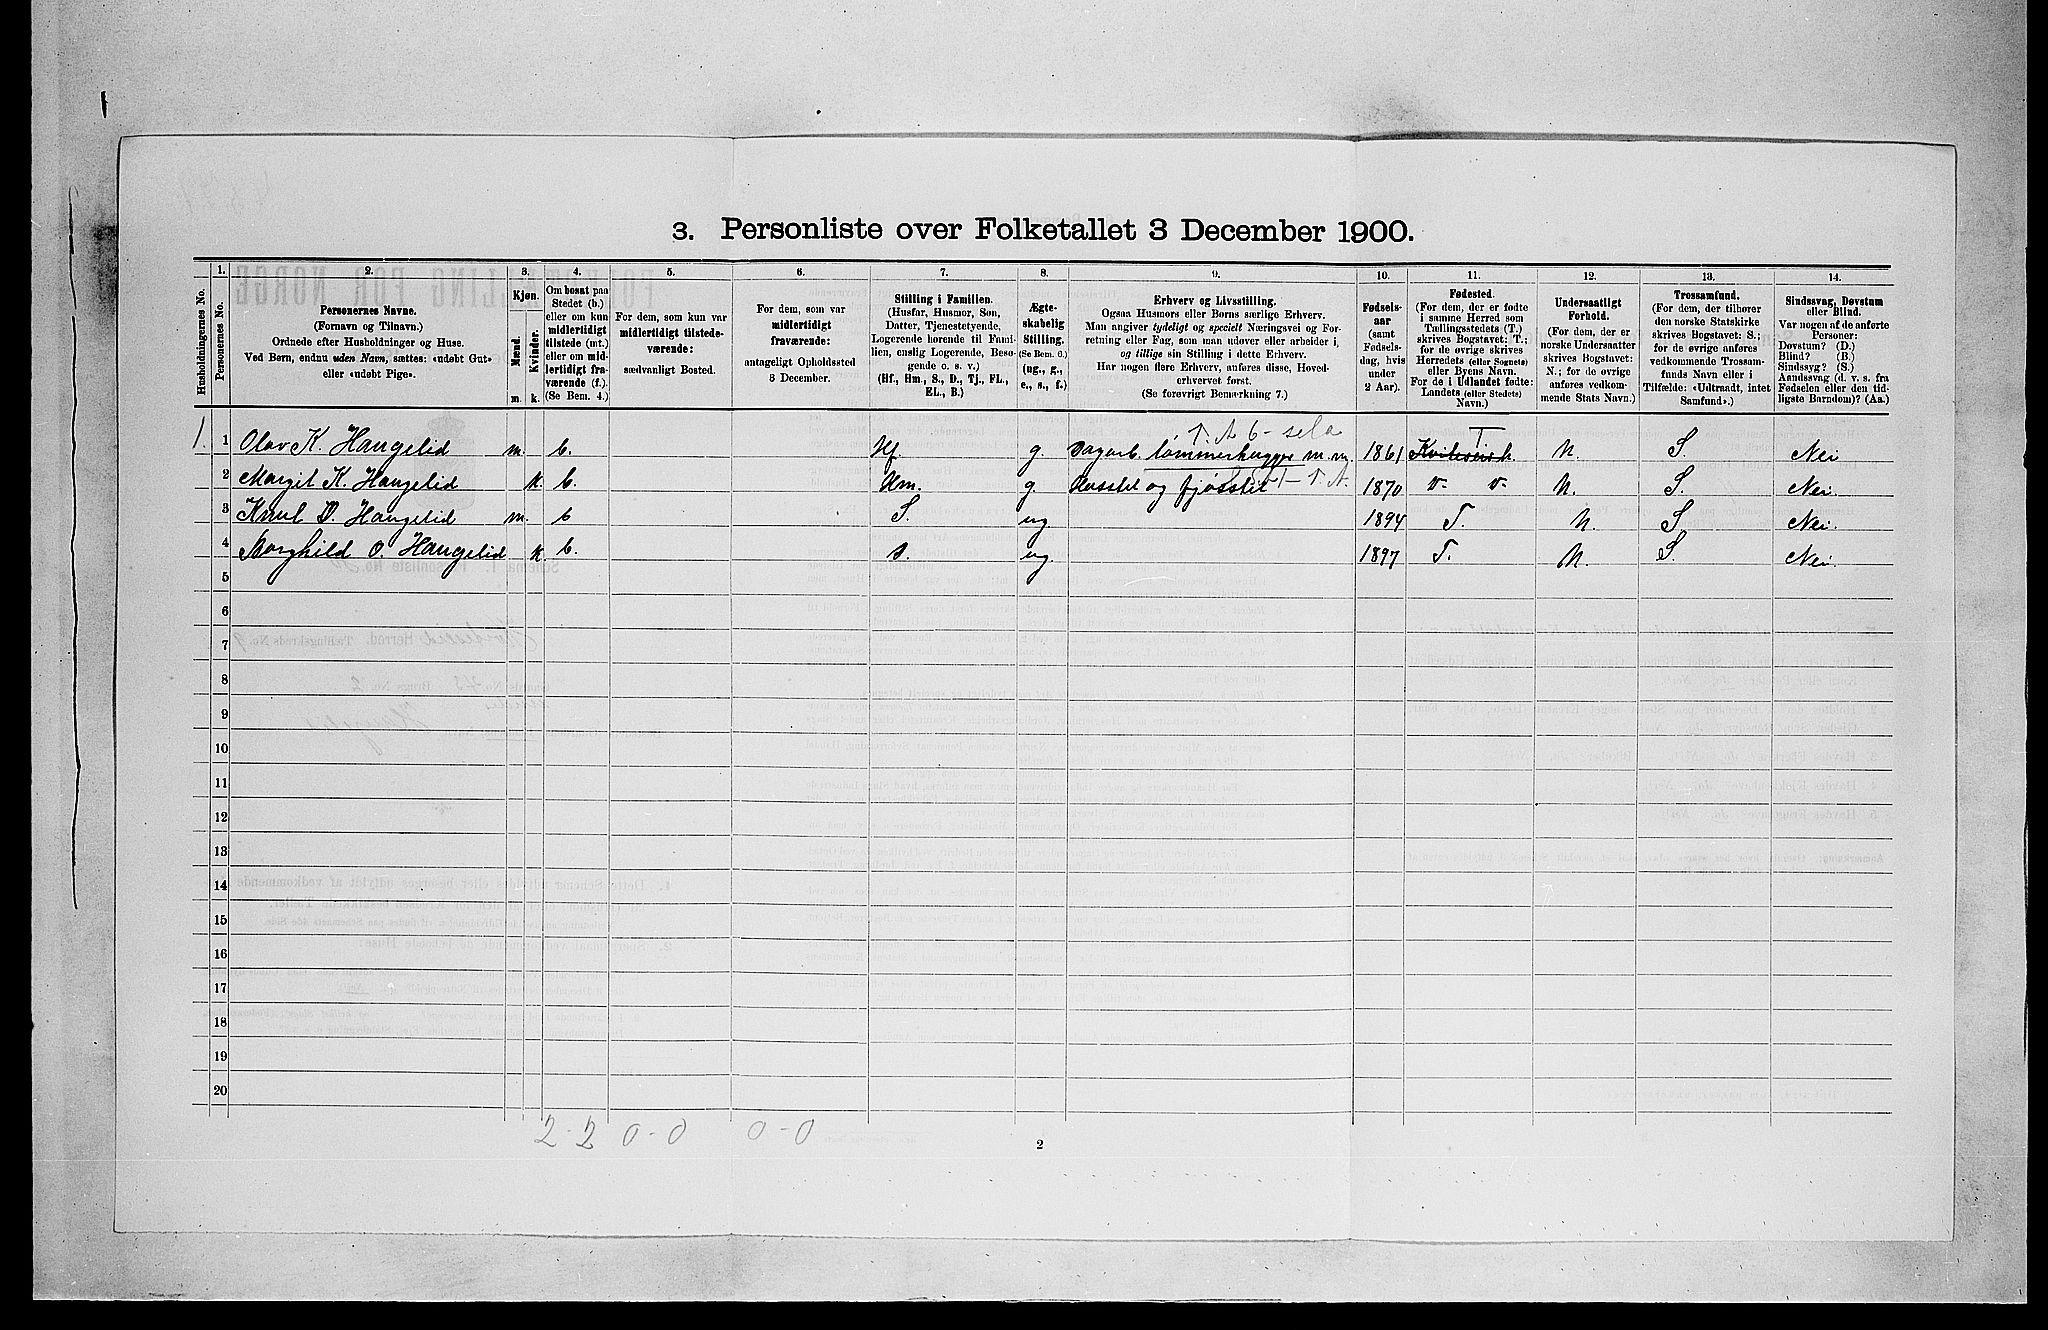 3. Personliste over Folketallet 3 December 1900.
Husholdningernes No.
1.
Personernes No.
2.
Personernes Navne.
(Fornavn og Tilnavn.)
Ordnede efter Husholdninger og Huse.
Ved Børn, endnu uden Navn, sættes: «udøbt Gut»
eller «udøbt Pige».
3.
Kjøn.
Mænd.
Kvinder.
m. k.
4.
Om bosat paa
Stedet (b.)
eller om kun
midlertidigt
tilstede (mt.)
eller om mid-
lertidigt fra-
værende (f.).
(Se Bem. 4.)
5.
For dem, som kun var
midlertidigt tilstede-
værende:
sædvanligt Bosted.
6.
For dem, som var
midlertidigt
fraværende:
antageligt Opholdssted
3 December.
7.
Stilling i Familien.
(Husfar, Husmor, Søn,
Datter, Tjenestetyende,
Logerende hørende til Fami-
lien, enslig Logerende, Besø-
gende o. s. v.)
(Hf., Hm., S., D., Tj., FL.,
EL., B.)
8.
Ægte-
skabelig
Stilling.
(Se Bem. 6.)
(ug., g.,
e., s., f.)
9.
Erhverv og Livsstilling.
Ogsaa Husmors eller Børns særlige Erhverv.
Man angiver tydeligt og specielt Næringsvei og For-
retning eller Fag, som man udøver eller arbeider i,
og tillige sin Stilling i dette Erhverv.
Har nogen flere Erhverv, anføres disse, Hoved-
erhvervet først.
(Se forøvrigt Bemærkning 7.)
10.
Fødsels-
aar
(samt
Fødsels-
dag, hvis
under
2 Aar).
11.
Fødested.
(For dem, der er fødte
i samme Herred som
Tællingsstedets (T.)
skrives Bogstavet: T.;
for de øvrige skrives
Herredets (eller Sognets)
eller Byens Navn.
For de i Udlandet fødte:
Landets (eller Stedets)
Navn.)
12.
Undersaatligt
Forhold.
(For dem, der er
norske Undersaatter
skrives Bogstavet:
N.; for de øvrige
anføres vedkom-
mende Stats Navn.)
13.
Trossamfund.
(For dem, der tilhører
den norske Statskirke
skrives Bogstavet: S.;
for de øvrige anføres
vedkommende Trossam-
funds Navn eller i
Tilfælde: «Udtraadt, intet
Samfund».)
14.
Sindssvag, Døvstum
eller Blind.
Var nogen af de anførte
Personer:
Døvstum? (D.)
Blind? (B.)
Sindssyg? (S.)
Aandssvag (d. v. s. fra
Fødselen eller den tid-
ligste Barndom)? (Aa.)
T
1. 1 Olav K. Haugelid m. b. Hf. g. Dagarb. tømmerhugger m.m. 1861 Kviteseid N. S. Nei
2 Margit K. Haugelid k. b. Hm. g. Husstel og fjøsstel 1870 v- v- N. S. Nei.
3 Knut O. Haugelid m. b S. ug. 1894 T. N. S. Nei.
4 Borghild O. Haugelid k. b. d. ug. 1897 T. N. S. Nei.
5
6
7
8
9
10
11
12
13
14
15
16
17
18
19
20
2-2 0-0 0-0
2